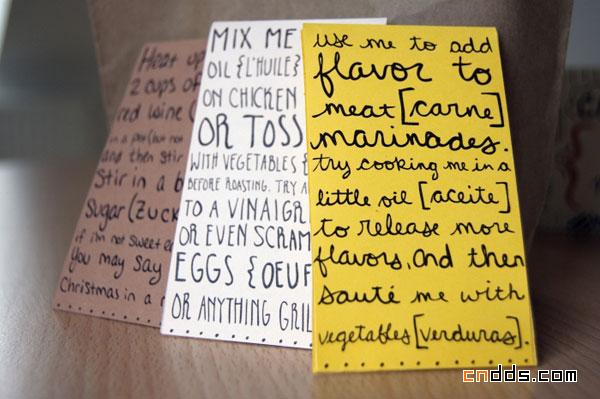 Heat up
2 cups of
red wine
in a pot (but not
and then stir
Stir in a b
Sugar (zuck
if i'm not sweet e
You may say
Christmas in a
MIX ME
OIL {L'HUILE}
ON CHICKEN
OR TOSS
WITH VEGETABLES {
BEFORE ROASTING. TRY A
TO A VINAIGR
OR EVEN SCRAM
EGGS {OEUF
OR ANYTHING GRIL
use me to add
flavor to
meat [carne]
marinades.
try cooking me in a
little oil [aceite]
to release more
flavors, and then
sauté me with
vegetables [verduras].
cndds.com